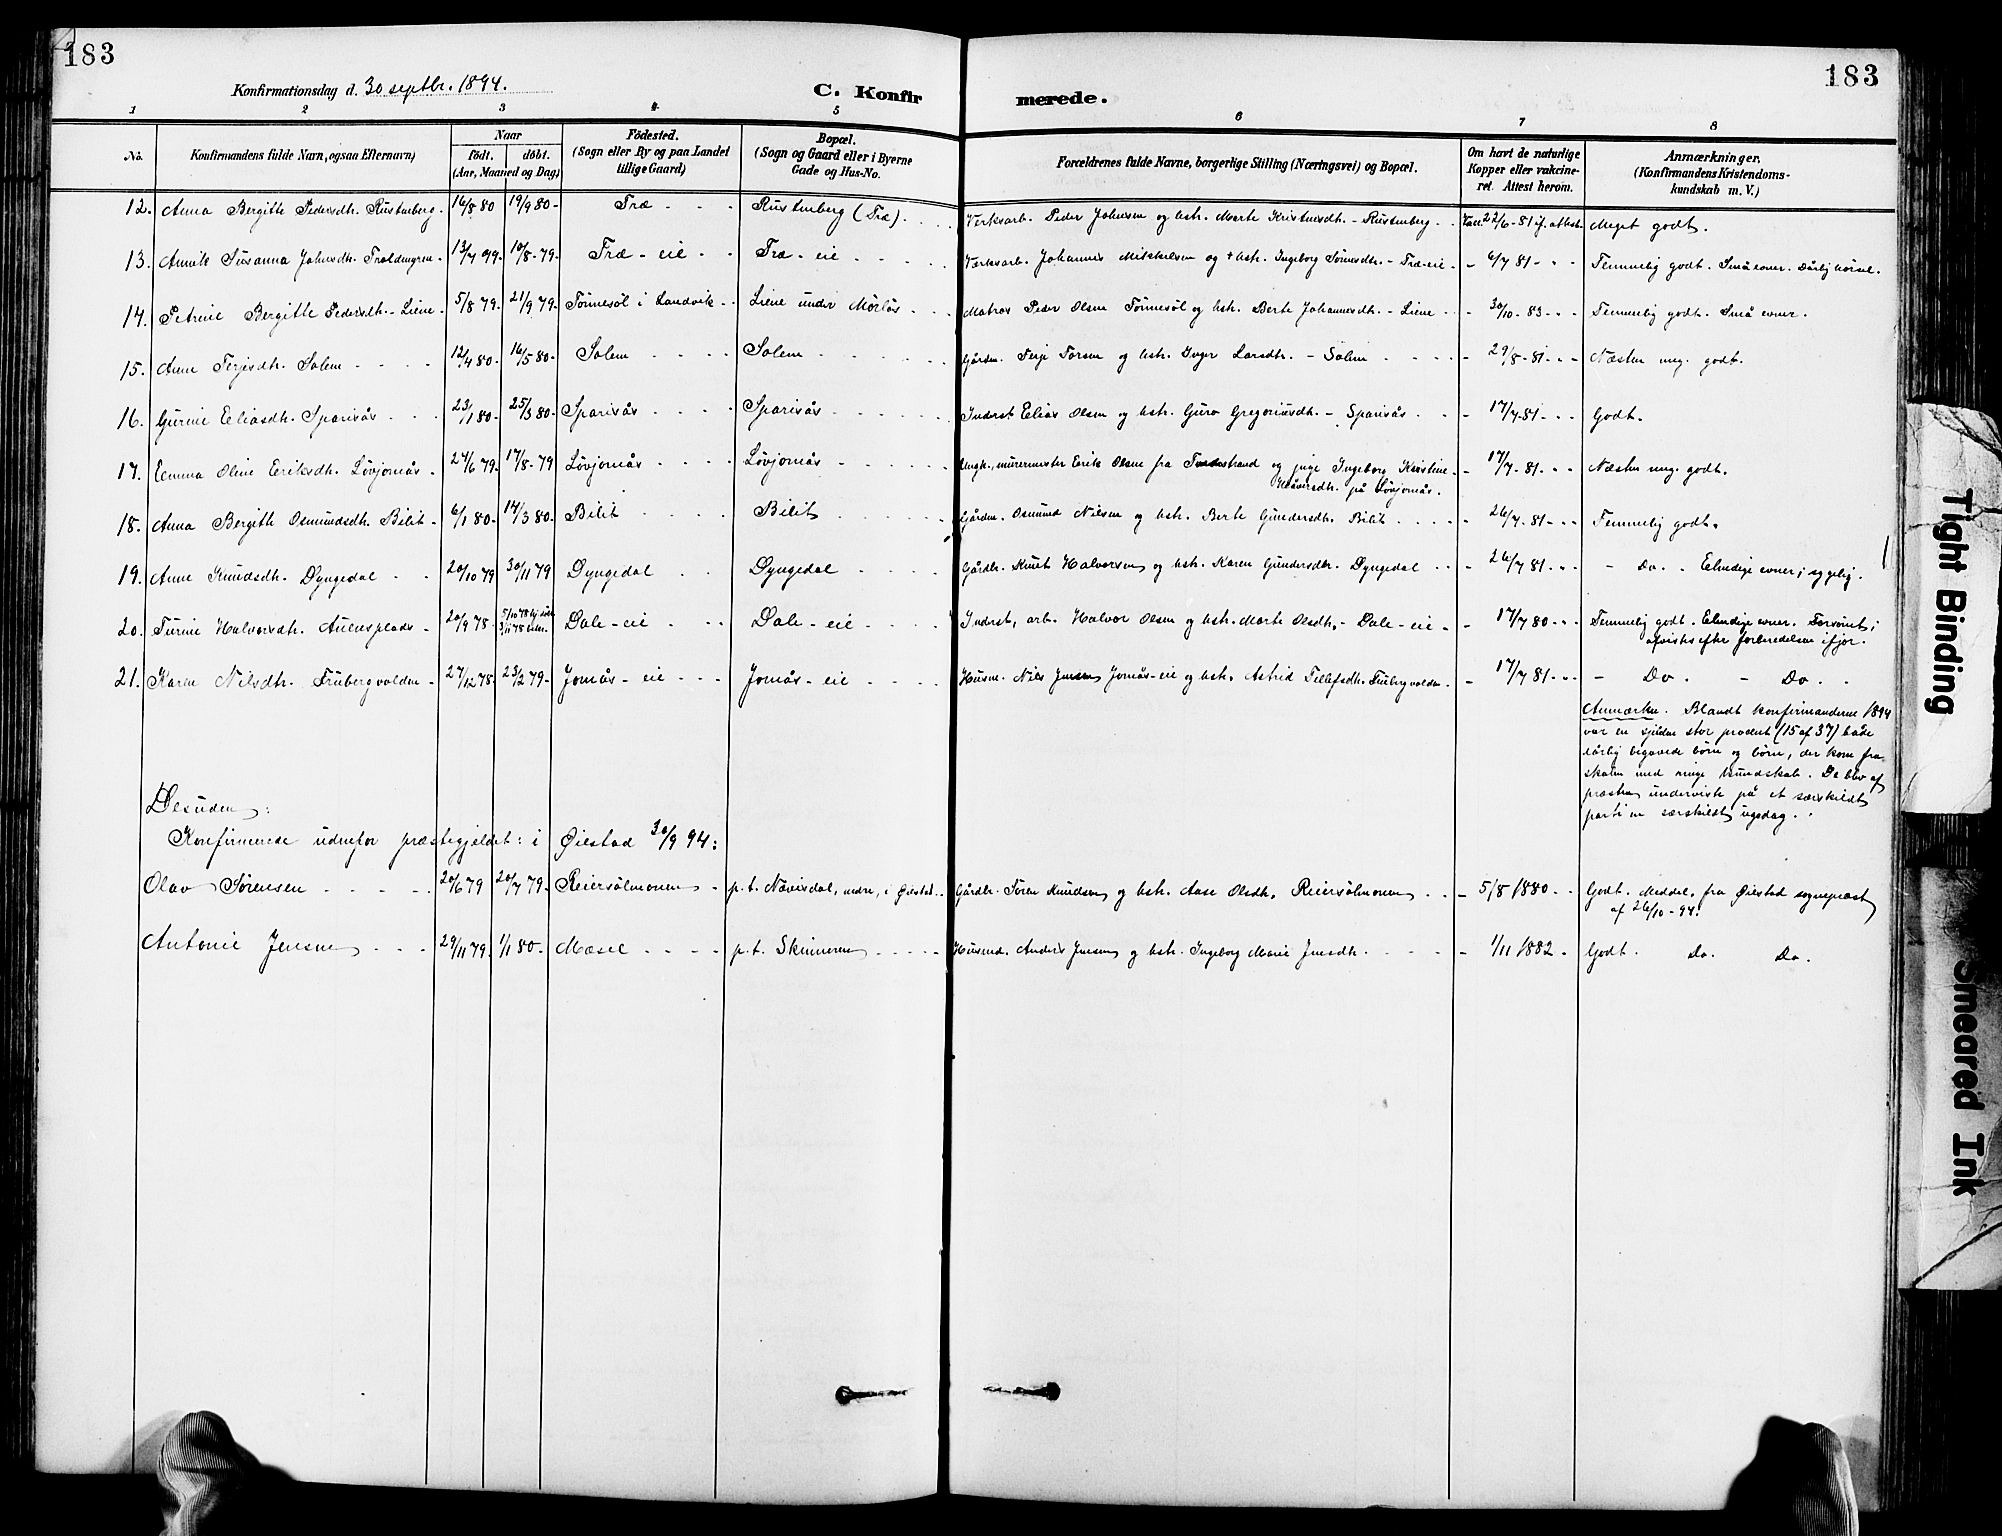 183
183
Konfirmationsdag d. 30 septbr. 1894.
C. Konfirmerede.
1 2 3 4 5 6 7 8
No.
Konfirmandens fulde Navn, ogsaa Efternavn)
Naar
födt. döbt.
(Aar, Maaned og Dag)
Födested.
(Sogn eller By og paa Landet
tillige Gaard)
Bopæl.
(Sogn og Gaard eller i Byerne
Gade og Hus-No.
Forældrenes fulde Navne, borgerlige Stilling (Næringsvei) og Bopæl.
Om havt de naturlige
Kopper eller vakcine-
ret. Attest herom.
Anmærkninger.
(Konfirmandens Kristendoms-
kundskab m. V.)
12. Anna Bergitte Pedersdh. Rustenberg - 16/8 80 19/9 80 - Træ - - - Rustenberg (Træ) . Verksarb. Peder Johnsen og hstr. Marte Kristensdh. - Rustenberg - Vacc. 22/6 - 81 if. attest. Meget godt.
13. Susanna Johnsdh. Troldengren - 13/7 79 - 10/8 - 79 - Træ - eie - - Træ - eie - - - Værksarb. Johannes Mikkelsen og + hstr. Ingeborg Tönnesdh. - Træ-eie - - 6/7 81 - " - Temmelig godt. Små evner. Dårlig hörsel.
14. Petrine Bergitte Pedersdh. - Liene - 5/8 79 - 21/9 79 - Tönnesöl i Landvik - - Liene under Mörlös - - - Matros Peder Olsen Tönnesöl og hstr. Berte Johannesdh. - Liene - - 30/10 - 83 - " - Temmelig godt. Små evner.
15. Anne Terjesdh. Solem - - - - 12/4 80 - 16/5 80 - Solem - - - - Solem - - - - Gårdm. Terje Torsen og hstr. Inger Larsdh. - Solem - - - - 29/8 - 81 - " - Næsten meg. godt.
16. Gurine Eliasdh. Sparisås - - - 23/1 80 - 25/3 80 - Sparisås - - - Sparisås - - - - Inderst Elias Olsen og hstr. Guro Gregoriusdh. - Sparisås - - - 17/7 - 81 - " - Godt.
17. Emma Oline Eriksdh. Lövjomås - 24/6 79 - 17/8 - 79 Lövjomås - - - Lövjomås - - - - Ungk. murermester Erik Olsen fra og pige Ingeborg Kristine
Håversdh. på Lövjomås. - 17/7 - 81 - " - Næsten meg. godt.
18. Anna Bergitte Osmundsdh. Bilit - 6/1 80 - 14/3 80 - Bilit - - - Bilit - - - - Gårdm. Osmund Nilsen og hstr. Berte Gundersdh. Bilit - - - - 26/7 - 81 - " - Temmelig godt.
19. Anne Knudsdh. Dyngedal - - 20/10 79 30/11 79 Dyngedal - - Dyngedal - - - - Gårdbr. Knut Halvorsen og hstr. Karen Gundersdh. Dyngedal - - - 26/7 81 - " - - Do. - Elendige evner; sygelig.
20. Turine Halvorsdh. Auensplads - 20/9 78 - 5/10 78 hj. döbt
3/11 78 Dale - eie - - Dale - eie - - - Inderst, arb. Halvor Olsen og hstr. Marte Olsdh. - Dale - eie - - 17/7 80 - " - Temmelig godt. Elendige evner. Forsömt;
afvistes efter forberedelsen ifjor.
21. Karen Nilsdh. Frubergvolden - 27/12 78 - 23/2 79 - Jomås - eie - - - Jomås - eie - - - - Husm. Nils Jensen Jomås - eie og hstr. Astrid Tellefsdh. Fruberg volden - - 17/7 81 - " - - Do. - Do. -
Anmærkn. Blandt konfirmanderne 1894
var en sjelden stor procent (15 af 37) både
dårlig begavede börn og börn, der kom fra
skolen med ringe kundskab. De blev af
præsten underviste på et særskildt
parti en særskildt ugedag.
Desuden:
Konfirmerede udenfor præstegjeldet: i Öiestad 30/9 94:
Olav Sörensen - - - - 20/6 79 20/7 79 - Reiersölmonen - p. t. Nævisdal, nedre, i Öiestad - Gårdbr. Sören Knudsen og hstr. Aase Olsdh. Reiersölmonen - - - 5/8 1880 - - Godt. Meddel. fra Öiestad sognepræst
af 26/10 - 94.
Antonie Jensen - - - 29/11 79 1/1 80 - Mæsel - - - - p. t. Skimeren - - - - Husmd. Anders Jensen og hstr. Ingeborg Marie Jensdh. - - - - - 1/11 1882 - Godt. Do. Do.
Tight Binding
Smeared Ink